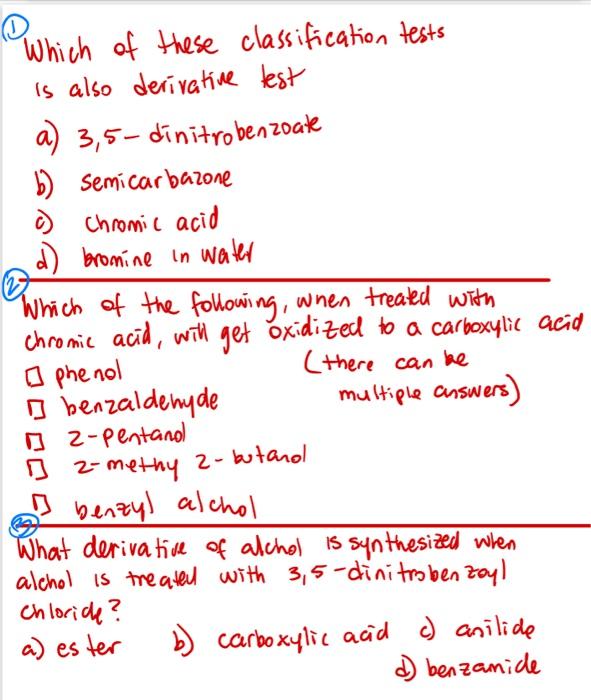 ① Which of these classification tests
is also derivative test
a) 3,5-dinitrobenzoate
b) semicarbazone
c) chromic acid
d) bromine in water
② Which of the following, when treated with
chromic acid, will get oxidized to a carboxylic acid
(there can be
multiple answers)
□ phenol
□ benzaldehyde
□ 2-pentanol
□ 2-methy 2-butanol
□ benzyl alchol
③ What derivative of alchol is synthesized when
alchol is treated with 3,5-dinitrobenzoyl
chloride?
a) ester b) carboxylic acid c) anilide
d) benzamide